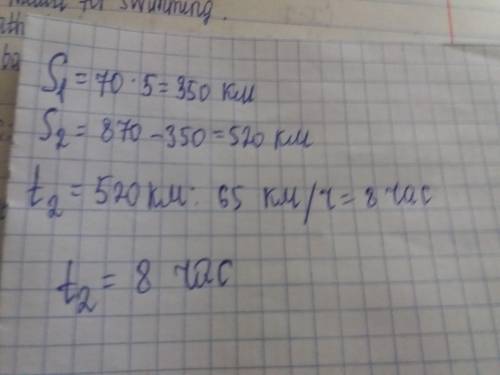 for swimming.
S₁ = 70 · 5 = 350 км
S₂ = 870 - 350 = 520 км
t₂ = 520 км : 65 км/ч = 8 час
t₂ = 8 час